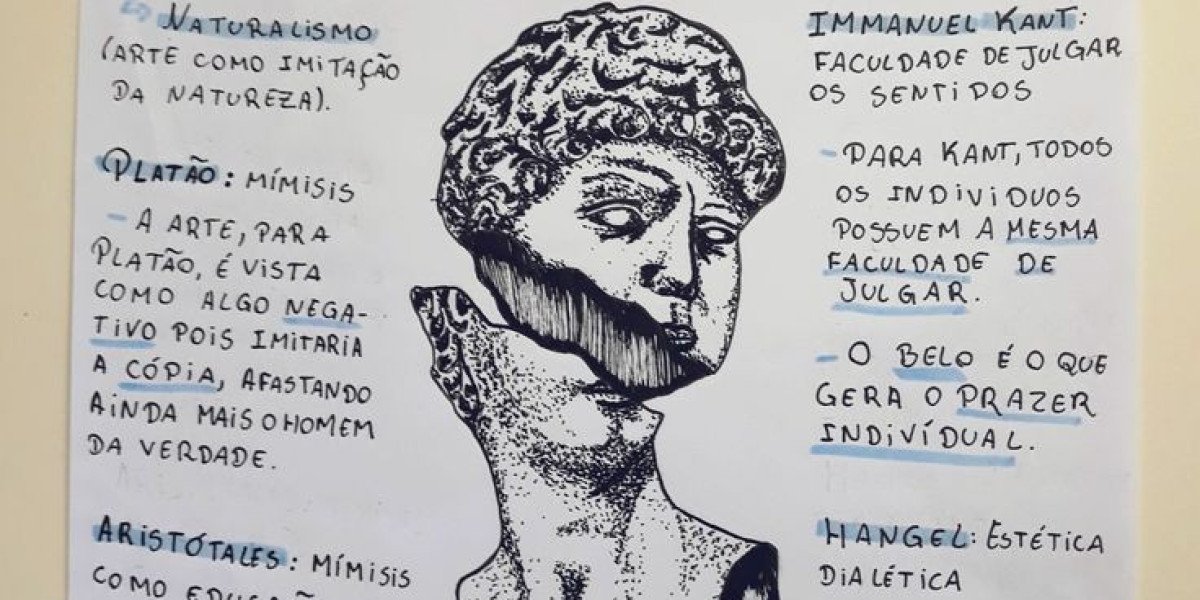 NATURALISMO
(ARTE COMO IMITAÇÃO
DA NATUREZA).
PLATÃO: MÍMISIS
- A ARTE, PARA
PLATÃO, É VISTA
COMO ALGO NEGA-
TIVO POIS IMITARIA
A CÓPIA, AFASTANDO
AINDA MAIS O HOMEM
DA VERDADE.
ARISTÓTALES: MÍMISIS
COMO EDUCAÇÃO
IMMANUEL KANT:
FACULDADE DE JULGAR
OS SENTIDOS
- PARA KANT, TODOS
OS INDIVIDUOS
POSSUEM A MESMA
FACULDADE DE
JULGAR.
- O BELO É O QUE
GERA O PRAZER
INDIVÍDUAL.
HANGEL: ESTÉTICA
DIALÉTICA